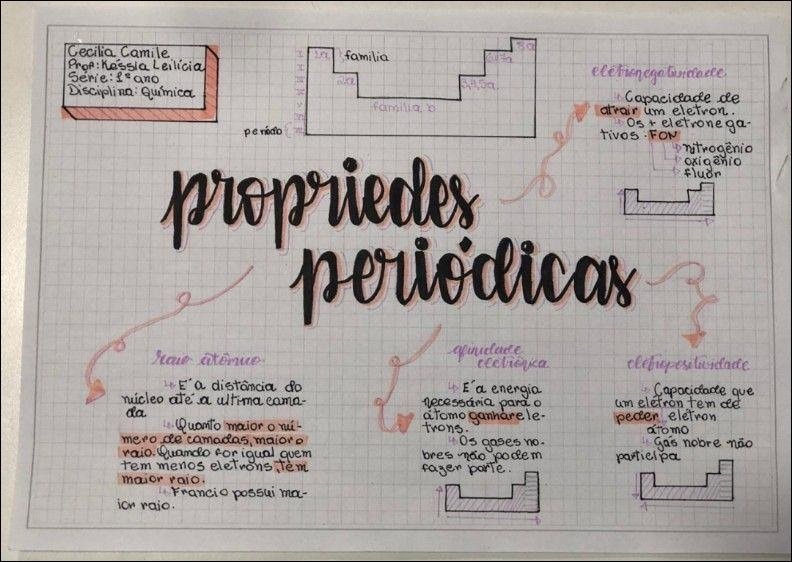 Cecilia Camile
Prof: Késsia Leilícia
Série: 1º ano
Disciplina: Química
1a
família
2a
família b
3,4,5a
6,7a
8a
período
propriedes
periódicas
eletronegatividade
Capacidade de
atrair um eletron.
Os + eletronega-
tivos: FON
nitrogênio
oxigênio
fluor
raio atômico
É a distância do
núcleo até a ultima cama-
da
Quanto maior o nú-
mero de camadas, maior o
raio. Quando for igual quem
tem menos eletrons, tem
maior raio.
Francio possui ma-
ior raio.
afinidade
eletrônica
É a energia
necessária para o
átomo ganhar ele-
trons.
Os gases no-
bres não podem
fazer parte.
eletropositividade
Capacidade que
um eletron tem de
peder eletron
átomo
Gás nobre não
participa